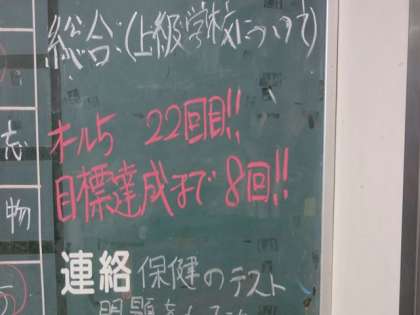 総合:(上級学校について)
オール5 22回目!!
目標達成まで8回!!
志
物
連絡 保健のテスト
問題